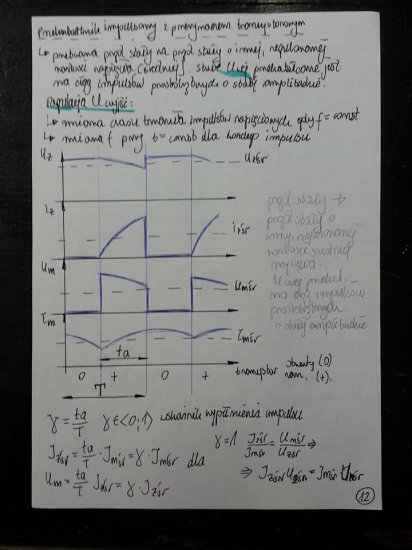 Przekształtnik impulsowy z przerywaniem tranzystorowym
↳ przetwarza prąd stały na prąd stały o innej, regulowanej
wartości napięcia (średniej). Stałe Uwej przekształcone jest
na ciąg impulsów prostokątnych o stałej amplitudzie.
Regulacja U wyjść:
↳ zmiana czasu trwania impulsów napięciowych gdy f = const
↳ zmiana f przy t = const dla każdego impulsu
Uz
Uzśr
iz
izśr
Um
Umśr
Im
Imśr
prąd stały →
prąd stały o
innej, regulowanej
wartości średniej
napięcia.
U wej przekszt.
na ciąg impulsów
prostokątnych
o stałej amplitudzie
ta
0 + 0 +
T
tranzystor
otwarty (0)
zam. (+)
γ = ta/T γ∈<0;1> wskaźnik wypełnienia impulsu
Izśr = ta/T · Imśr = γ · Imśr dla
γ=1 Izśr/Imśr = Umśr/Uzśr ⇒
Um = ta/T Izśr = γ · Izśr
⇒ Izśr Uzśr = Imśr Umśr
12